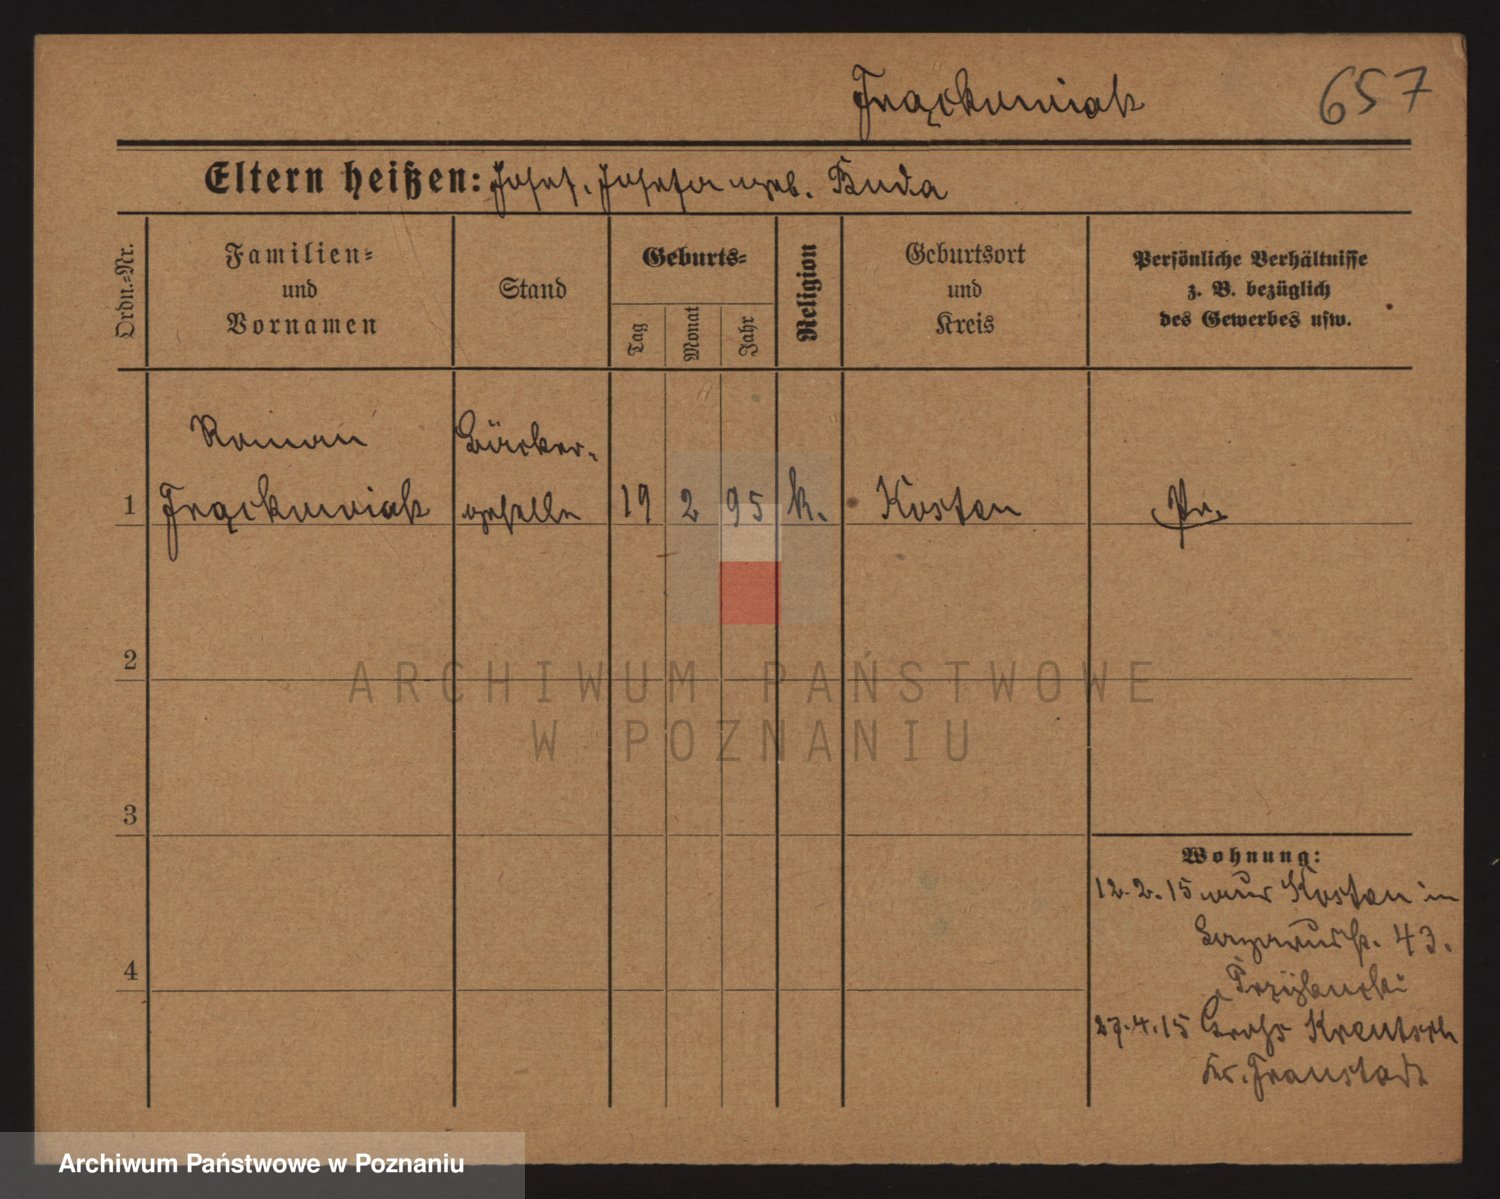 Frąckowiak 657
Eltern heißen: Josef, Josefa geb. Buda
Ordn.=Nr.
Familien=
und
Vornamen
Stand
Geburts=
Tag
Monat
Jahr
Religion
Geburtsort
und
Kreis
Persönliche Verhältnisse
z. B. bezüglich
des Gewerbes usw.
Roman Bäcker-
1 Frąckowiak geselle 19 2 95 k. Kosten Pr.
2
3
4
Wohnung:
12.2.15 aus Kosten in
43.
27.4.15 Groß Kreutsch
Kr. Fraustadt
ARCHIWUM PAŃSTWOWE
W POZNANIU
Archiwum Państwowe w Poznaniu